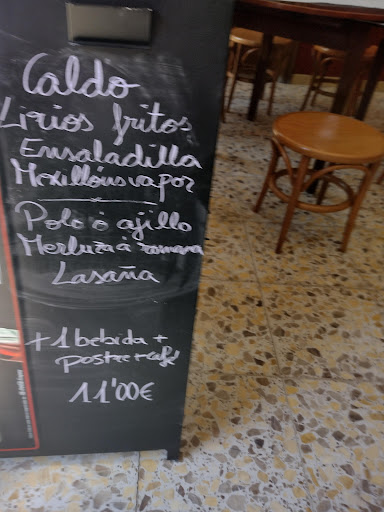 Caldo
Lirios fritos
Ensaladilla
Mexillóns vapor
Polo ó ajillo
Merluza á romana
Lasaña
+ 1 bebida +
postre + café
11'00€